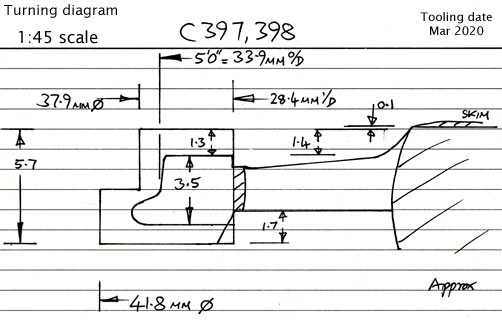 Turning diagram
1:45 scale
C397,398
Tooling date
Mar 2020
5'0" = 33.9mm O/D
37.9 MM Ø
28.4 MM I/D
0.1
SKIM
1.3
1.4
5.7
3.5
1.7
Approx
41.8 MM Ø